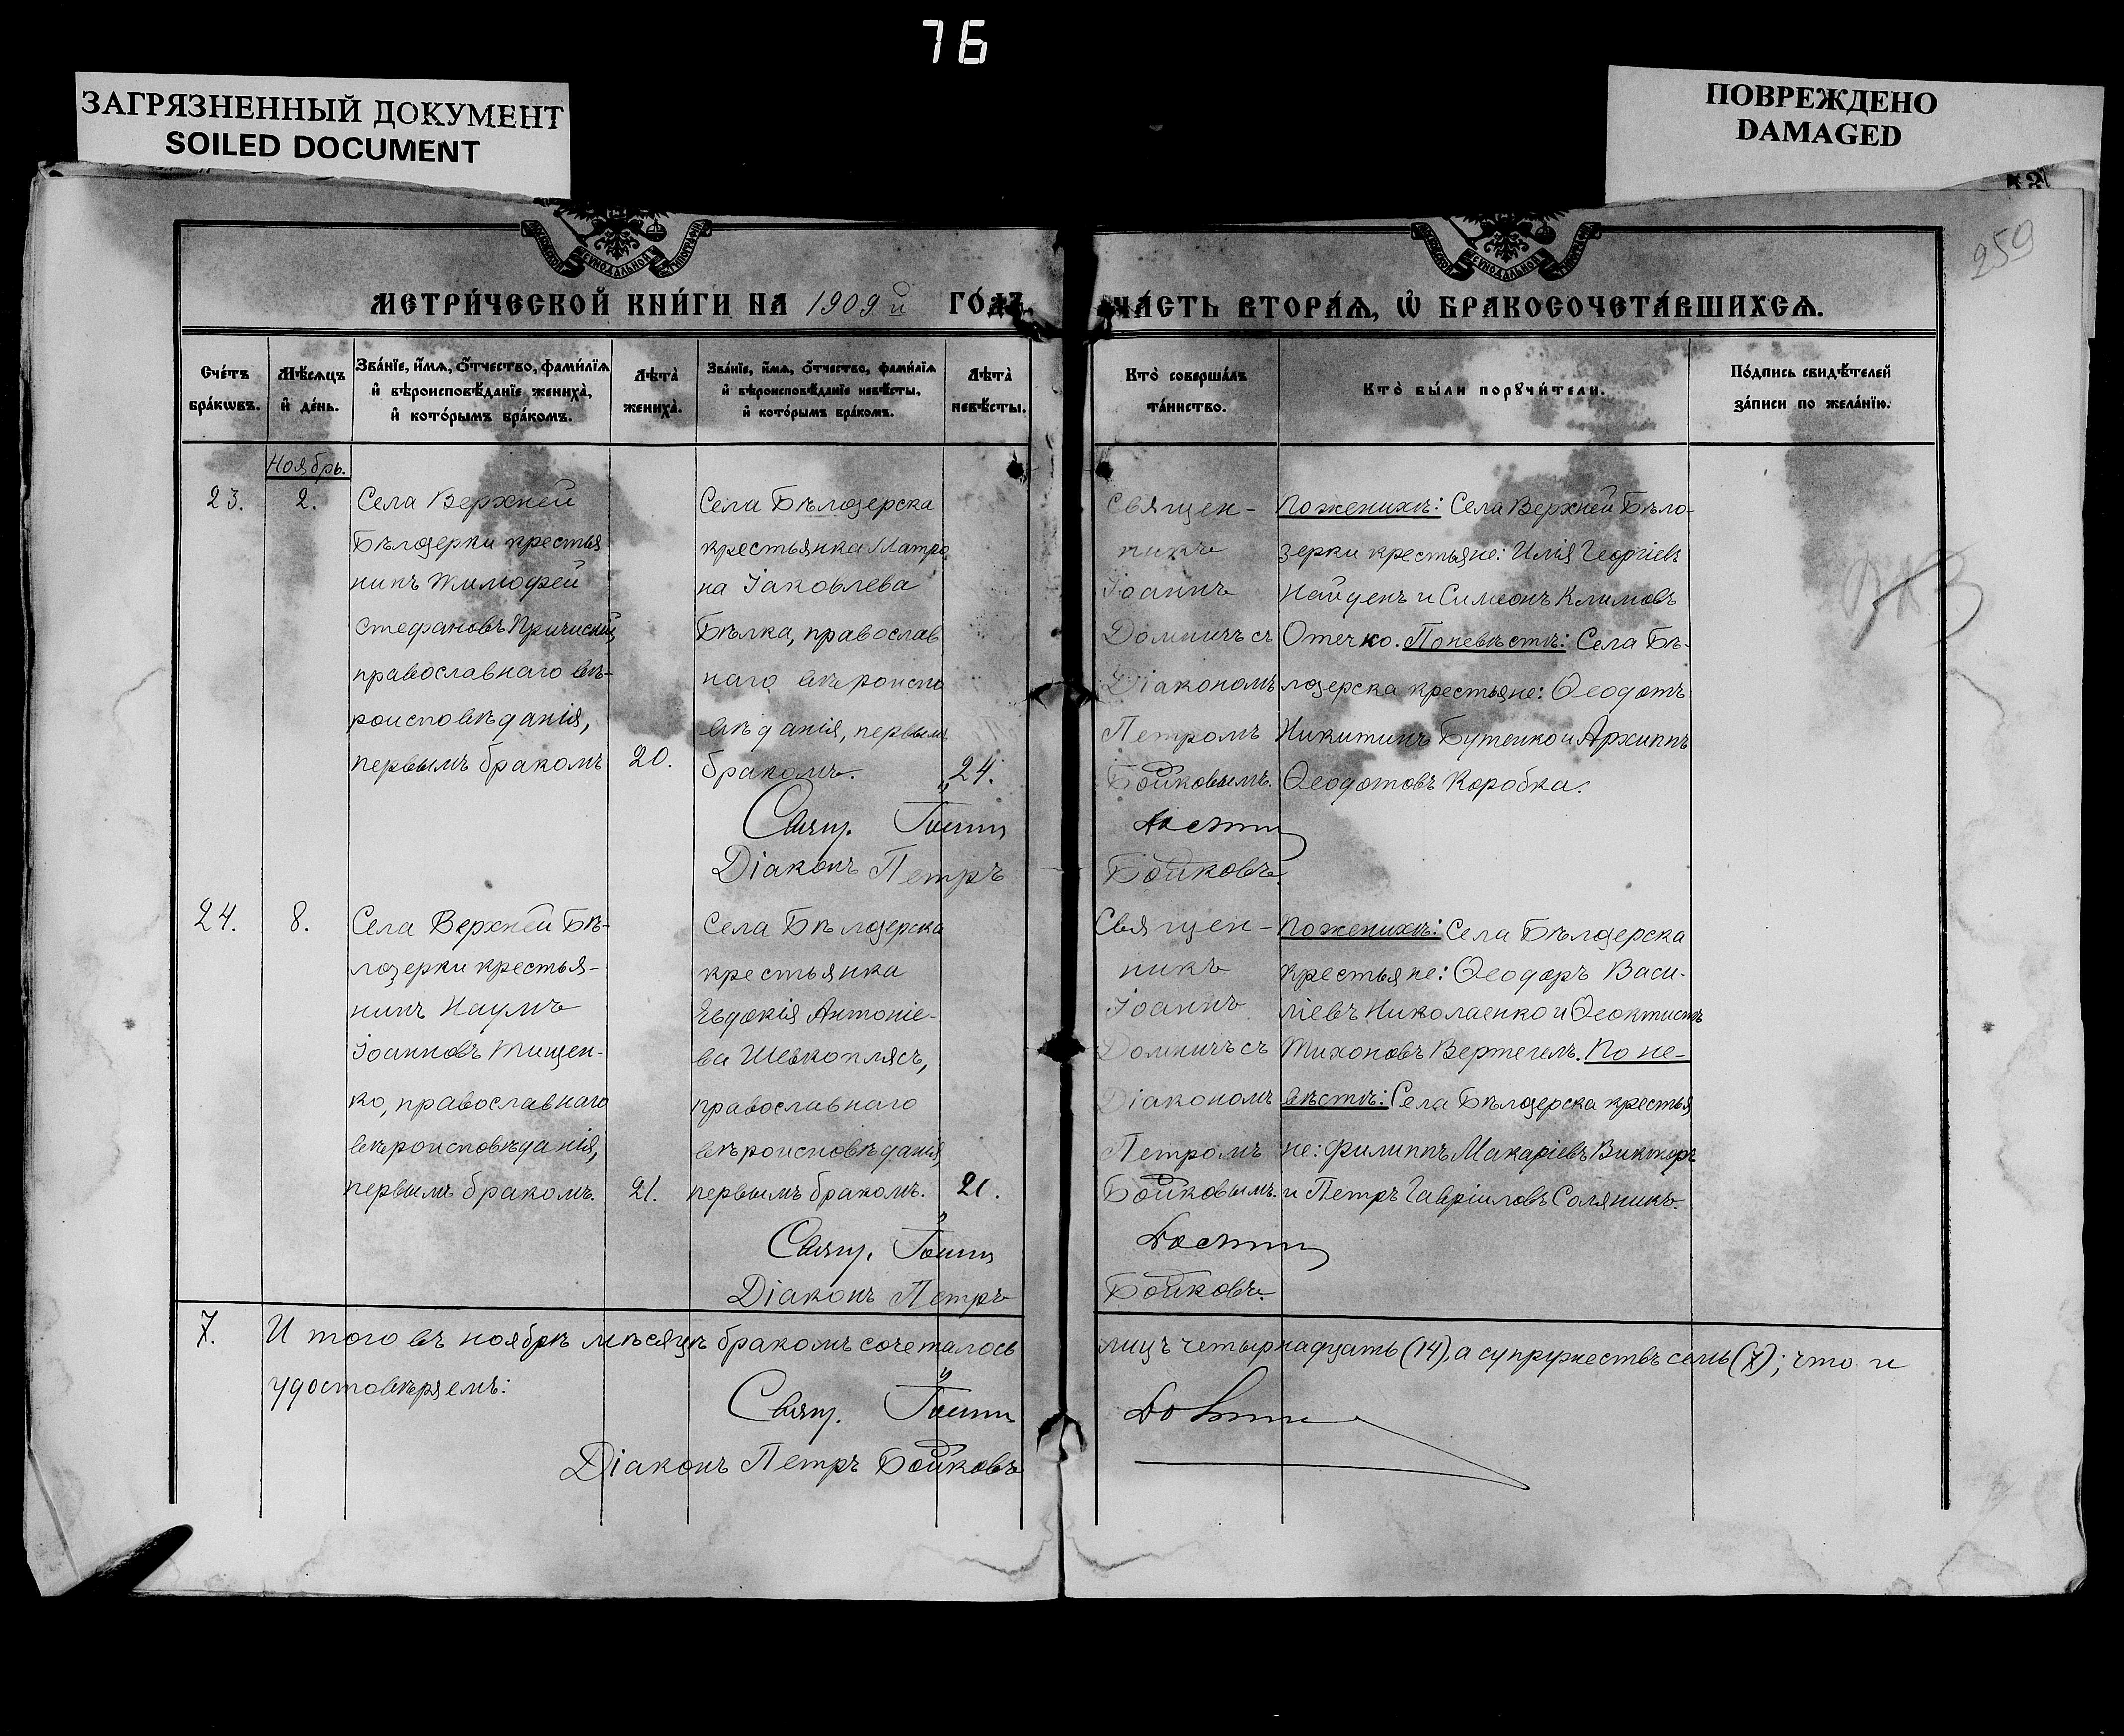 76
ЗАГРЯЗНЕННЫЙ ДОКУМЕНТ
SOILED DOCUMENT
ПОВРЕЖДЕНО
DAMAGED
259
МЕТРИ́ЧЕСКОЙ КНИ́ГИ НА 1909й ГО́ДЪ.
ЧА́СТЬ ВТОРА́Ѧ, Ѡ҆ БРАКОСОЧЕТА́ВШИХСѦ.
Сче́тъ
бра́кѡвъ.
Мѣ́сѧцъ
и҆ де́нь.
Зва́нїе, и҆́мѧ, ѻ҆́тчество, фами́лїѧ
и҆ вѣроисповѣ́данїе жениха̀,
и҆ кото́рымъ бра́комъ.
Лѣта̀
жениха̀.
Зва́нїе, и҆́мѧ, ѻ҆́тчество, фами́лїѧ
и҆ вѣроисповѣ́данїе невѣ́сты,
и҆ кото́рымъ бра́комъ.
Лѣта̀
невѣ́сты.
Кто̀ соверша́лъ
та́инство.
Кто̀ бы́ли порꙋчи́тели.
По́дпись свидѣ́телей
за́писи по жела́нїю.
Ноябрь.
23.
2.
Села Верхней
Бѣлозерки крестья
нинъ Тимофей
Стефановъ Причиский
православнаго вѣ-
роисповѣданія,
первымъ бракомъ
20.
Села Бѣлозерска
крестьянка Матро
на Іаковлева
Бѣлка, православ
наго вѣроиспо
вѣданія, первымъ
бракомъ.
24.
Священ-
никъ
Іоаннъ
Домничъ съ
Діакономъ
Петромъ
Бойковымъ.
По женихѣ: Села Верхней Бѣло-
зерки крестьяне: Илія Георгіевъ
Найденъ и Симеонъ Климовъ
Отечко. По невѣстѣ: Села Бѣ-
лозерска крестьяне: Ѳеодотъ
Никитинъ Бутенко и Архиппъ
Ѳеодотовъ Коробка.
Свящ. Іоаннъ
Діаконъ Петръ
Бойковъ.
24.
8.
Села Верхней Бѣ-
лозерки крестья-
нинъ Наумъ
Іоанновъ Тищен-
ко, православнаго
вѣроисповѣданія,
первымъ бракомъ.
21.
Села Бѣлозерска
крестьянка
Евдокія Антоніе-
ва Шевкоплясъ,
православнаго
вѣроисповѣданія
первымъ бракомъ.
21.
Священ-
никъ
Іоаннъ
Домничъ съ
Діакономъ
Петромъ
Бойковымъ.
По женихѣ: Села Бѣлозерска
крестьяне: Ѳеодоръ Васи-
ліевъ Николаенко и Ѳеоктистъ
Тихоновъ Вертегелъ. По не-
вѣстѣ: Села Бѣлозерска крестья
не: Филиппъ Макаріевъ Викторъ
и Петръ Гавріиловъ Соляникъ.
Свящ. Іоаннъ
Діаконъ Петръ
Бойковъ.
7.
И того въ ноябрѣ мѣсяцѣ бракомъ сочеталось
лицъ четырнадцать (14), а супружествъ семь (7); что и
удостовѣряемъ:
Свящ. Іоаннъ
Діаконъ Петръ Бойковъ